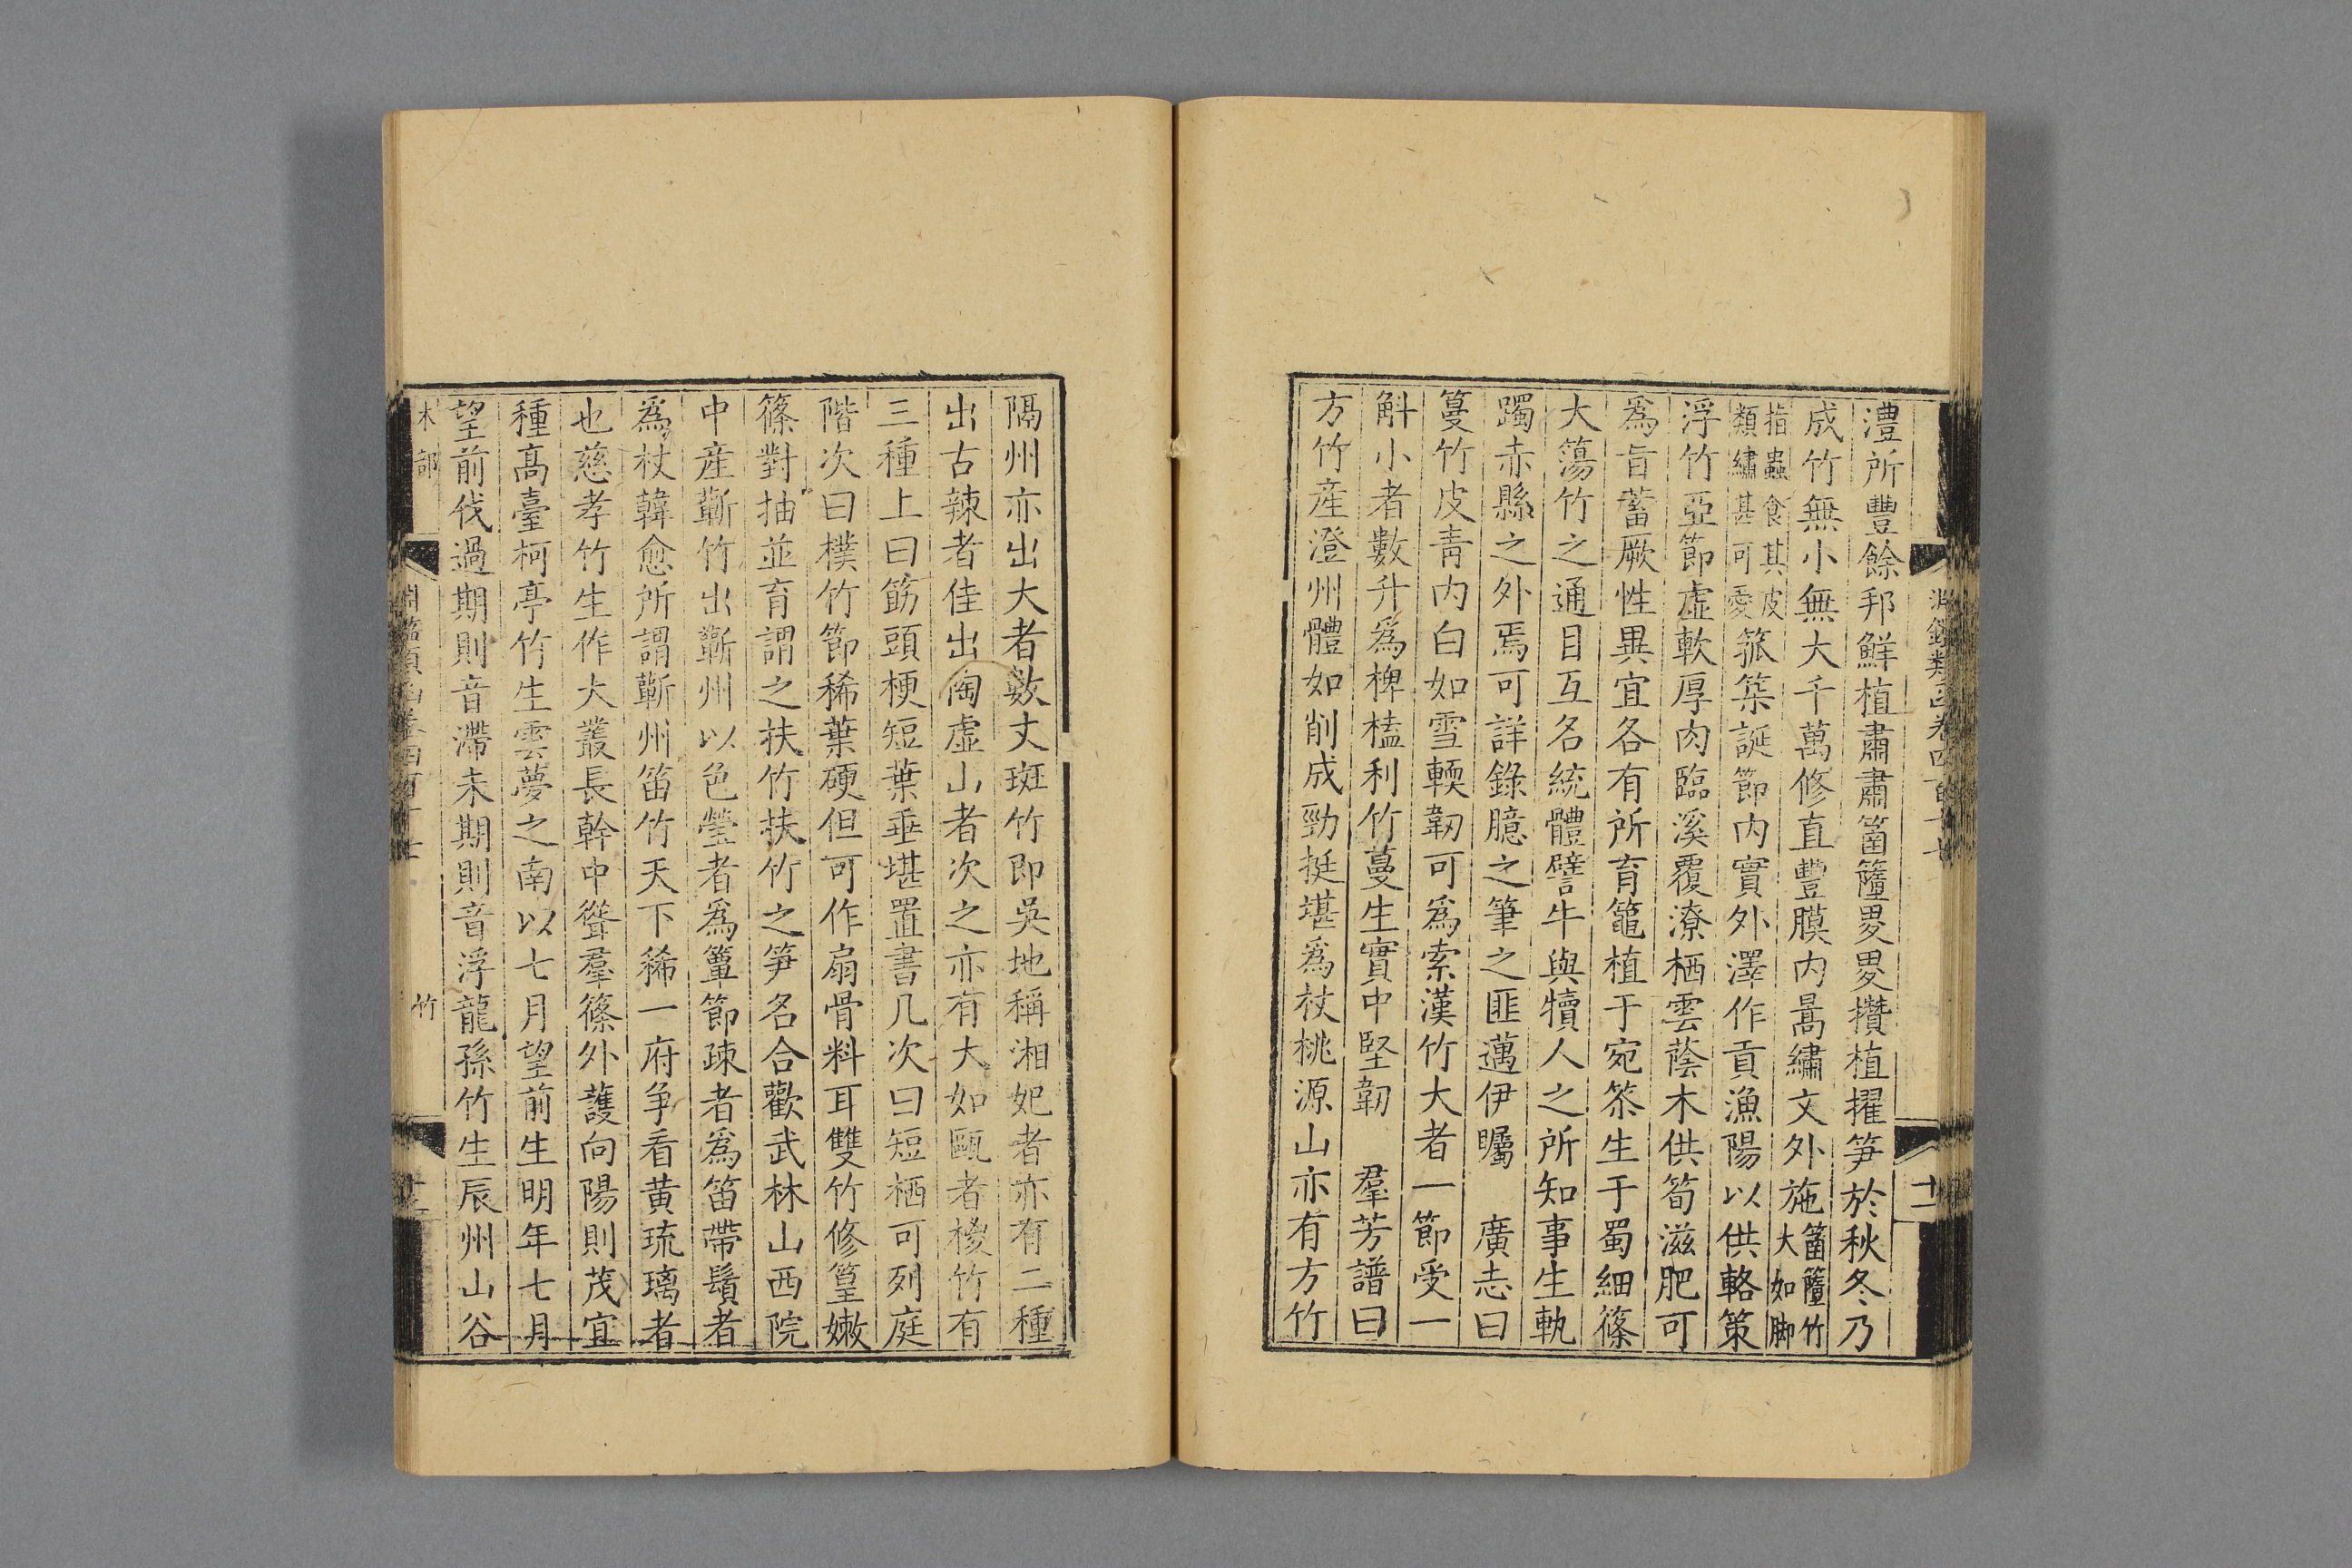 淵鑑類函卷四百十七
十一
澧所豐餘邦鮮植肅肅䇹𥵃畟畟攢植擢笋於秋冬乃
成竹無小無大千萬修直豐膜內暠繡文外施䇹𥵃竹大如脚
指蟲食其皮類繡甚可愛箛箂誕節內實外澤作貢漁陽以供輅策
浮竹亞節虛軟厚肉臨溪覆潦栖雲蔭木供筍滋肥可
爲旨蓄厥性異宜各有所育簵植于宛筡生于蜀細篠
大簜竹之通目互名統體譬牛與犢人之所知事生軌
躅赤縣之外焉可詳錄臆之筆之匪邁伊矚 廣志曰
䈵竹皮青內白如雪輭韌可爲索漢竹大者一節受一
斛小者數升爲椑榼利竹蔓生實中堅韌 羣芳譜曰
方竹産澄州體如削成勁挺堪爲杖桃源山亦有方竹
隔州亦出大者數丈斑竹即吳地稱湘妃者亦有二種
出古辣者佳出陶虛山者次之亦有大如甌者椶竹有
三種上曰筯頭梗短葉垂堪置書几次曰短栖可列庭
階次曰樸竹節稀葉硬但可作扇骨料耳雙竹修篁嫩
篠對抽並育謂之扶竹扶竹之笋名合歡武林山西院
中産蘄竹出蘄州以色瑩者爲簟節疎者爲笛帶鬚者
爲杖韓愈所謂蘄州笛竹天下稀一府爭看黃琉璃者
也慈孝竹生作大叢長幹中聳羣篠外護向陽則茂宜
種高臺柯亭竹生雲夢之南以七月望前生明年七月
望前伐過期則音滯未期則音浮龍孫竹生辰州山谷
木部
淵鑑類函卷四百十七
竹